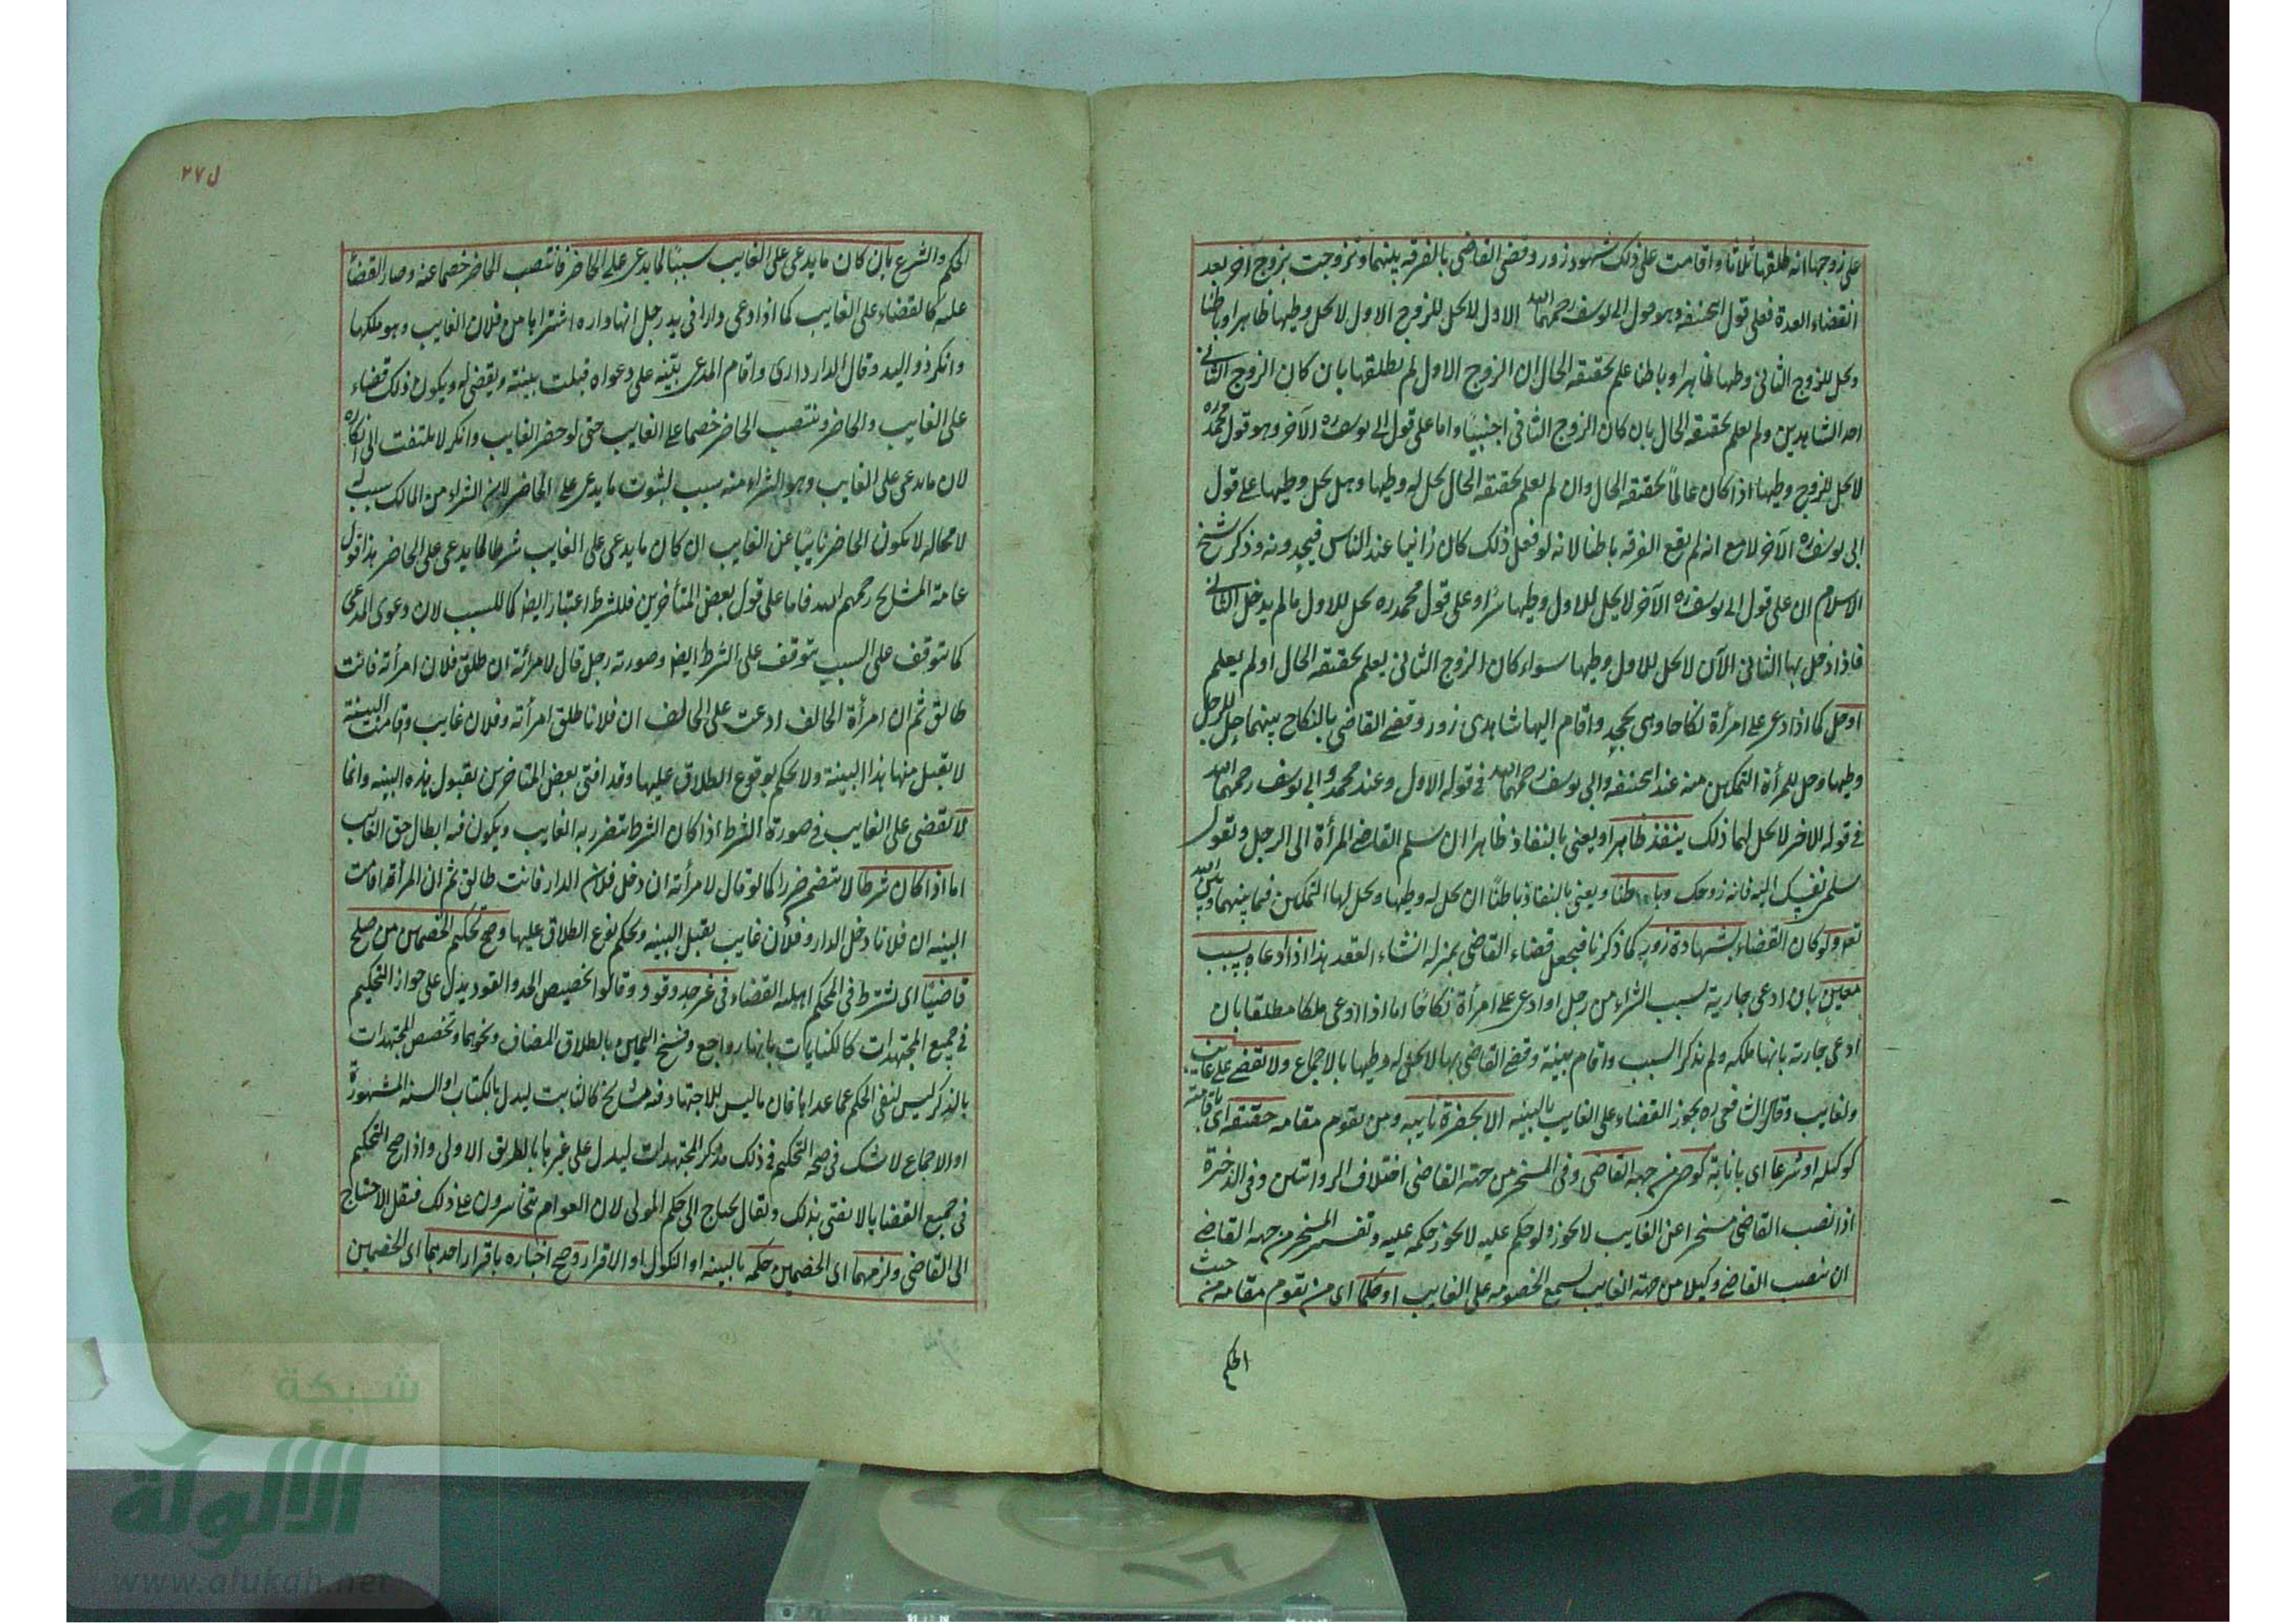 على زوجها انه طلقها ثلاثا واقامت على ذلك شهود زور وقضى القاضى بالفرقه بينهما وتزوجت بزوج اخر بعد
انقضاء العدة فعلى قول ابحنيفه وهو قول ابى يوسف رحمهما الله الاول لا يحل للزوج الاول وطيها ظاهرا وباطنا
ويحل للزوج الثانى وطيها ظاهرا وباطنا علم بحقيقه الحال ان الزوج الاول لم يطلقها بان كان الزوج الثانى
احد الشاهدين ولم يعلم بحقيقه الحال بان كان الزوج الثانى اجنبيا واما على قول ابى يوسف ره الآخر وهو قول محمد ره
لا يحل للزوج وطيها اذا كان عالما بحقيقه الحال وان لم يعلم بحقيقه الحال يحل له وطيها وهل يحل وطيها على قول
ابى يوسف ره الآخر لا مع انه لم يقع الفرقه باطنا لانه لو فعل ذلك كان زانيا عند الناس فيحدونه وذكر شيخ
الاسلام ان على قول ابى يوسف ره الآخر لا يحل للاول وطيها سرا وعلى قول محمد ره يحل للاول ما لم يدخل الثانى
فاذا دخل بها الثانى الآن لا يحل للاول وطيها سواء كان الزوج الثانى يعلم بحقيقه الحال او لم يعلم
او حل كما اذا ادعى على امرأة نكاحا وهى تجحد واقام اليها شاهدى زور وقضى القاضى بالنكاح بينهما حل للرجل
وطيها وحل للمرأة التمكين منه عند ابحنيفه وابى يوسف رحمهما الله فى قوله الاول وعند محمد وابى يوسف رحمهما الله
فى قوله الاخر لا يحل لهما ذلك ينفذ ظاهرا ويعنى بالنفاذ ظاهرا ان يسلم القاضى المرأة الى الرجل ويقول
سلمى نفسك اليه فانه زوجك وباطنا ويعنى بالنفاذ باطنا ان يحل له وطيها ويحل لها التمكين فيما بينهما وبين الله
تعو ولو كان القضاء بشهادة زور كما ذكرنا فيجعل قضاء القاضى بمنزلة انشاء العقد هذا اذا ادعاه بسبب
معين بان ادعى جارية بسبب الشراء من رجل او ادعى على امرأة نكاحا اما اذا ادعى ملكا مطلقا بان
ادعى جارية بانها ملكه ولم يذكر السبب واقام بينة وقضى القاضى بها لا يحل له وطيها بالاجماع ولا يقضى على غايب
ولغايب وقال الشافعى ره يجوز القضاء على الغايب بالبينه الا بحضرة نايبه ومن يقوم مقامه حقيقه اى باقامته
كوكيله او شرعا اى بانابة كوصى من جهة القاضى وفى المسخر من جهة القاضى اختلاف الروايتين وفى الذخيرة
اذا نصب القاضى مسخرا عن الغايب لا يجوز ولو حكم عليه لا يجوز حكمه عليه وتفسير المسخر من جهة القاضى
ان ينصب القاضى وكيلا من جهة الغايب ليسمع الخصومه على الغايب او حكما اى من يقوم مقامه من حيث
الحكم
ل ٢٧
الحكم والشرع بان كان ما يدعى على الغايب سببا لما يدعى على الحاضر فانتصب الحاضر خصما عنه وصار القضاء
عليه كالقضاء على الغايب كما اذا ادعى دارا فى يد رجل انها داره اشتراها من فلان الغايب وهو ملكها
وانكر ذو اليد وقال الدار دارى واقام المدعى بينه على دعواه قبلت بينته ويقضى له ويكون ذلك قضاء
على الغايب والحاضر وينتصب الحاضر خصما على الغايب حتى لو حضر الغايب وانكر لا يلتفت الى انكاره
لان ما يدعى على الغايب وهو الشراء منه سبب لثبوت ما يدعى على الحاضر لان الشراء من المالك سبب له
لا محاله لا يكون الحاضر نايبا عن الغايب ان كان ما يدعى على الغايب شرطا لما يدعى على الحاضر هذا قول
عامة المشايخ رحمهم الله فاما على قول بعض المتأخرين فللشرط اعتبار ايضا كالسبب لان دعوى المدعى
كما تتوقف على السبب تتوقف على الشرط ايضا وصورته رجل قال لامرأته ان طلق فلان امرأته فانت
طالق ثم ان امرأة الحالف ادعت على الحالف ان فلانا طلق امرأته وفلان غايب وقامت البينة
لا تقبل منها هذا البينة ولا يحكم بوقوع الطلاق عليها وقد افتى بعض المتاخرين بقبول هذه البينه وانما
لا يقضى على الغايب فى صورة الشرط اذا كان الشرط يتضرر به الغايب ويكون فيه ابطال حق الغايب
اما اذا كان شرطا لا يتضمن ضررا كما لو قال لامرأته ان دخل فلان الدار فانت طالق ثم ان المرأة اقامت
البينه ان فلانا دخل الدار وفلان غايب يقبل البينه ويحكم بوقوع الطلاق عليها وصح تحكيم الخصمين من صلح
قاضيا اى يشترط فى المحكم اهلية القضاء فى غير حد وقود وقالوا تخصيص الحد والقود يدل على جواز التحكيم
فى جميع المجتهدات كالكنايات بانها رواجع وفسخ اليمين بالطلاق المضاف ونحوهما وتخصيص المجتهدات
بالذكر ليس لنفى الحكم عما عداها فان ما ليس للاجتهاد فيه مشايخ كالثابت ليدل بالكتاب او السنه المشهورة
او الاجماع لا شك فى صحة التحكيم فى ذلك وذكر المجتهدات ليدل على غيرها بالطريق الاولى واذا صح التحكيم
فى جميع القضايا لا يفتى بذلك ويقال يحتاج الى حكم المولى لان العوام يتجاسرون على ذلك فيقل الاحتياج
الى القاضى ولزمهما اى الخصمين حكمه بالبينه او النكول او الاقرار وصح اخباره باقرار احدهما اى الخصمين
شبكة
الألوكة
www.alukah.net